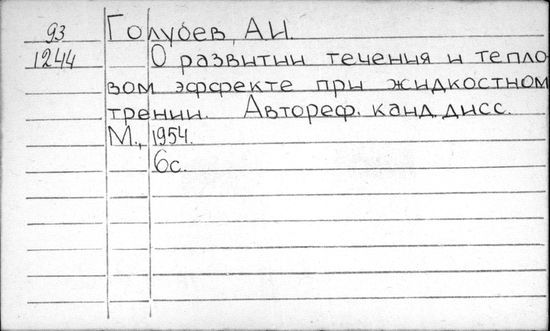 93 Голубев, А.И.
1244 О развитии течения и тепло-
вом эффекте при жидкостном
трении. Автореф. канд. дисс.
М., 1954.
6с.